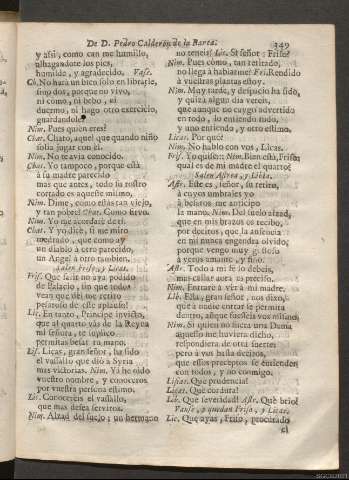 De D. Pedro Calderon de la Barca. 349
y assi, como can me humillo,
alhagandote los pies,
humilde, y agradecido. Vase.
Ch. No hará un bien solo en librarle,
sino dos, porque no vivo,
ni como, ni bebo, ni
duermo, ni hago otro exercicio,
guardandole.
Nin. Pues quién eres?
Chat. Chato, aquel que quando niño
solia jugar con él.
Nin. No te avia conocido.
Chat. Yo tampoco, porque está
à su madre parecido
mas que antes, todo su rostro
cortado es aqueste mismo.
Nin. Dime, cómo estás tan viejo,
y tan pobre? Chat. Como sirvo.
Nin. Yo me acordaré de ti.
Chat. Y yo diré, si me miro
medrado, que como ay
un diablo à otro parecido,
un Angel à otro tambien.
Salen Friso, y Licas.
Fris. Que salir no aya podido
de Palacio, sin que todos
vean que del me retiro
pesaroso de este aplauso!
Lic. En tanto, Principe invicto,
que al quarto vás de la Reyna
mi señora, te suplico
permitas besar tu mano.
Lis. Licas, gran señor, ha sido
el vassallo que dió à Syria
mas victorias. Nin. Yá he oido
vuestro nombre, y conoceros
por vuestra persona estimo.
Lic. Conoceréis el vassallo,
que mas desea serviros.
Nin. Alzad del suelo; un hermano
no teneis? Lic. Sí señor: Friso?
Nin. Pues cómo, tan retirado,
no llega à hablarme? Fri. Rendido
à vuestras plantas estoy.
Nin. Muy tarde, y despacio ha sido,
y quizá algun dia vereis,
que aunque no caygo advertido
en todo, lo entiendo todo,
y uno entiendo, y otro estimo.
Licas. Por qué?
Nin. No hablo con vos, Licas.
Fri. Yo quién? Nin. Bien está, Friso:
qual es de mi madre el quarto?
Salen Astrea, y Libia.
Astr. Este es, señor, su retiro,
à cuyos umbrales yo
à besaros me anticipo
la mano. Nin. Del suelo alzad,
que en mis brazos os recibo,
por deciros, que la ausencia
en mi nunca engendra olvido,
porque vengo muy gustoso
à veros amante, y fino.
Astr. Todo à mi fe lo debeis,
mas callar aora es preciso.
Nin. Entraré à vèr à mi madre.
Lib. Ella, gran señor, nos dixo,
que à nadie entrar se permita
dentro, aunque fuesseis vos mismo.
Nin. Si quien no fuera una Dama
aquesso me huviera dicho,
respondiera de otra suerte;
pero à vos basta deciros,
que essos preceptos se entienden
con todos, y no conmigo.
Lisias. Que prudencia!
Licas. Qué cordura!
Lib. Qué severidad! Astr. Qué brio!
Vanse, y quedan Friso, y Licas.
Lic. Que ayas, Friso, procurado
el